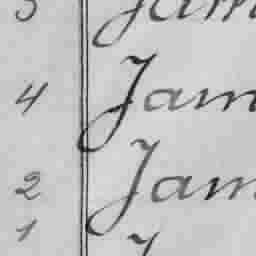 5 Jam
4 Jam
2 Jam
1 J